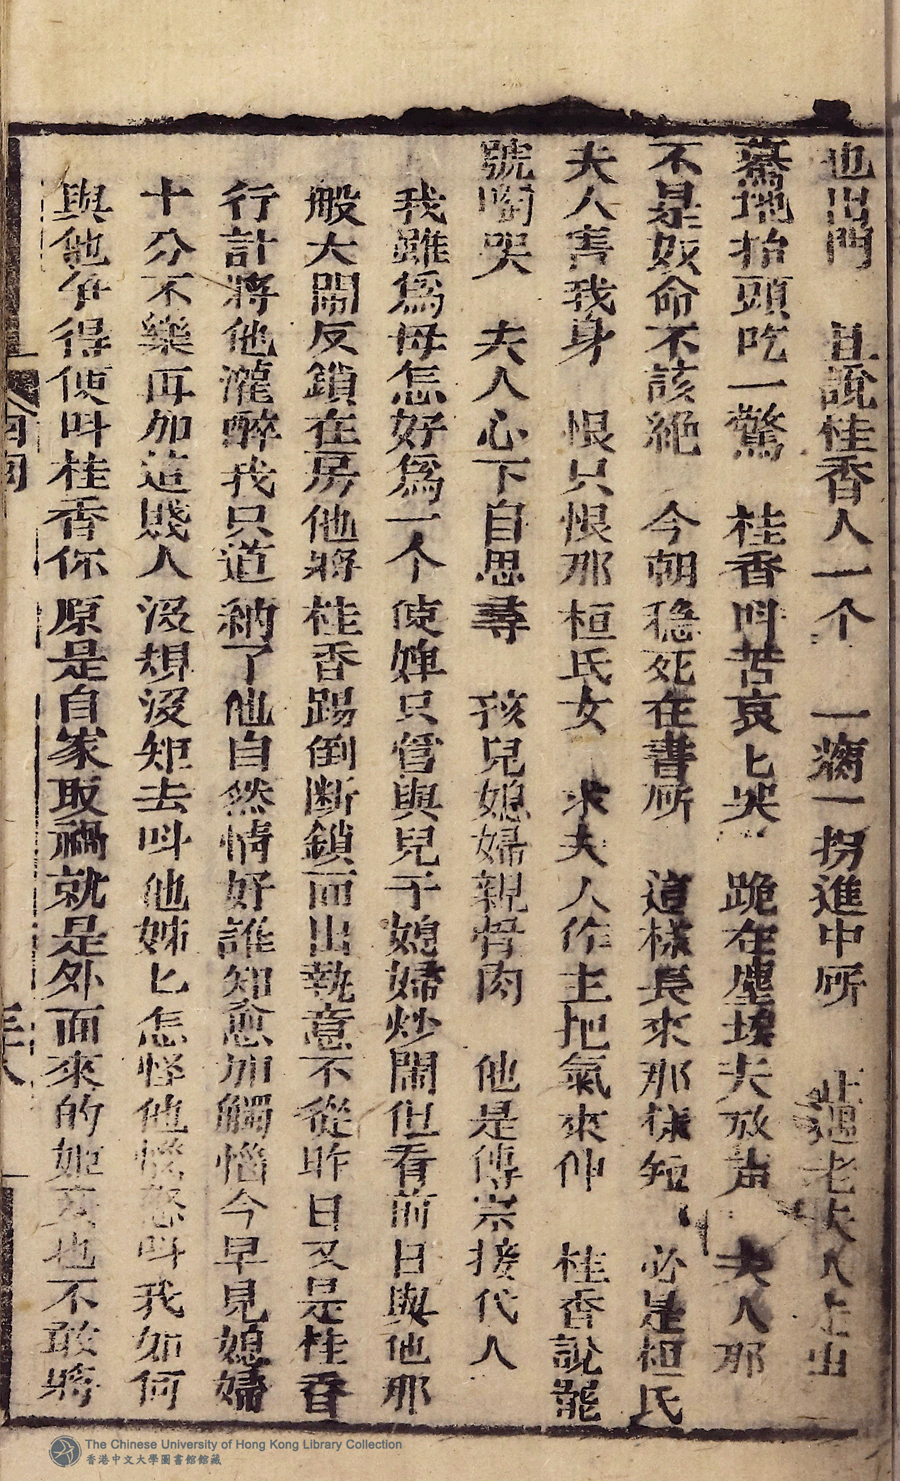 也出門　且說桂香人一个　一瘸一拐進中所　步遇老夫人走出
驀地抬頭吃一驚　桂香叫苦哀匕哭　跪在塵埃夫放声　夫人那
不是奴命不該絕　今朝稳死在書所　這樣長來那樣短　必是桓氏
夫人害我身　恨只恨那桓氏女　求夫人作主把氣來伸　桂香說罷
號啕哭　夫人心下自思尋　孩兒媳婦親骨肉　他是傳宗接代人
我雖爲母怎好爲一个使婢只管與兒子媳婦炒鬧但看前日與他那
般大鬧反鎖在房他將桂香踢倒断鎖而出執意不從昨日又是桂香
行計將他灌醉我只道納了他自然情好誰知愈加觸惱今早見媳婦
十分不樂再加這賤人没規没矩去叫他姊匕怎怪他惱怒叫我如何
與他爭得使叫桂香你原是自家取禍就是外面來的姬妾也不敢將
The Chinese University of Hong Kong Library Collection
香港中文大學圖書館館藏